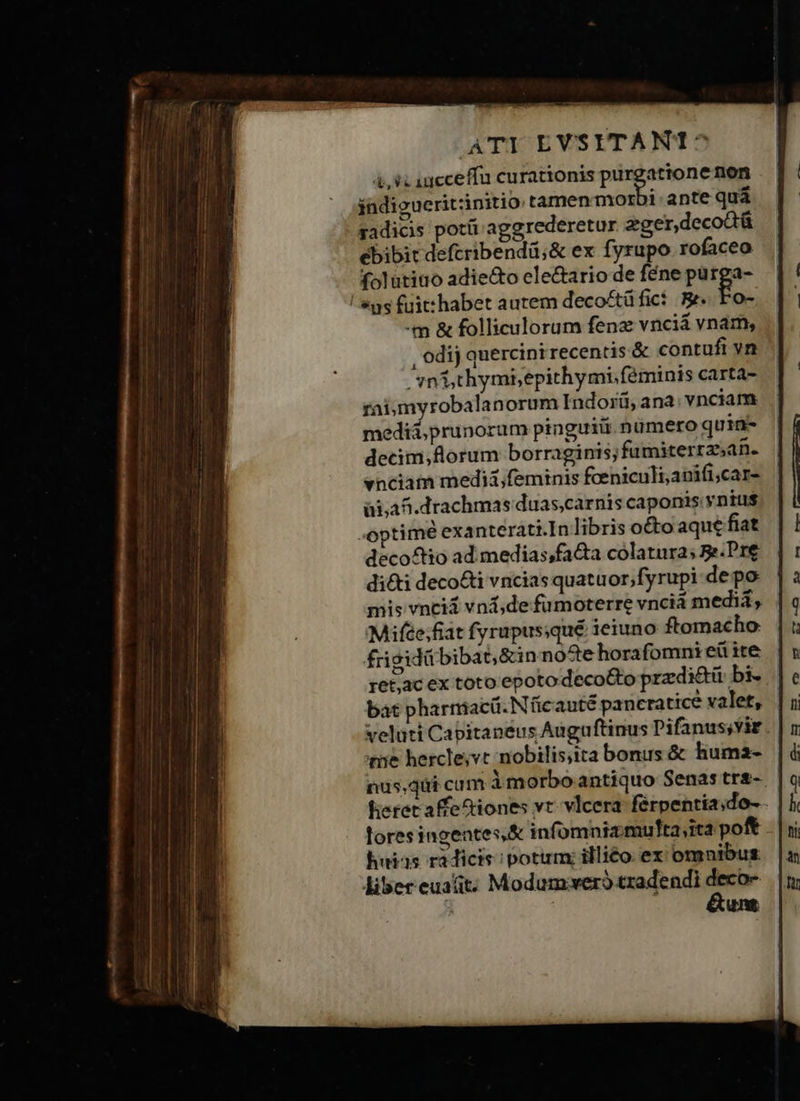 ATI LVSITANI
ſucceſſu curationis purgatione non
indiguerit: initio tamen morbi ante quã
radicis potũ aggrederetur æger, decoctũ
ebibit deſcribendũ, & ex ſyrupo roſaceo
ſolutiuo adiecto electario de ſene purga-
tus fuit: habet autem decoctũ ſic: ℞. Fo-
m & folliculorum ſenæ vnciã vnam,
odij quercini recentis & contuſi vn
vnã, thymi, epithymi, ſeminis carta-
mi, myrobalanorum Indorũ, ana vnciam
mediã, prunorum pinguiũ numero quin-
decim, florum borraginis, fumiterræ, añ.
vnciam mediã, ſeminis fœniculi, aniſi, car-
ui, añ. drachmas duas, carnis caponis vnius
optime exanterati. In libris octo aquę fiat
decoctio ad medias, facta colatura, ℞. Prę
dicti decocti vncias quatuor, ſyrupi de po
mis vnciã vnã, de fumoterrę vnciã mediã,
Miſce, fiat ſyrupus, quẽ ieiuno ſtomacho
frigidũ bibat, & in nocte hora ſomni eũ ite
ret, ac ex toto epoto decocto prædictũ bi-
bat pharmacũ. Nũc autẽ pancratice valet,
veluti Capitaneus Auguſtinus Piſanus, vir
me hercle, vt nobilis, ita bonus & huma-
nus, qui cum à morbo antiquo Senas tra-
heret affectiones vt vlcera ſerpentia, do-
lores ingentes, & inſomnia multa, ita poſt
huius radicis potum; illico ex omnibus
liber euaſit. Modum verò tradendi deco-
ctum